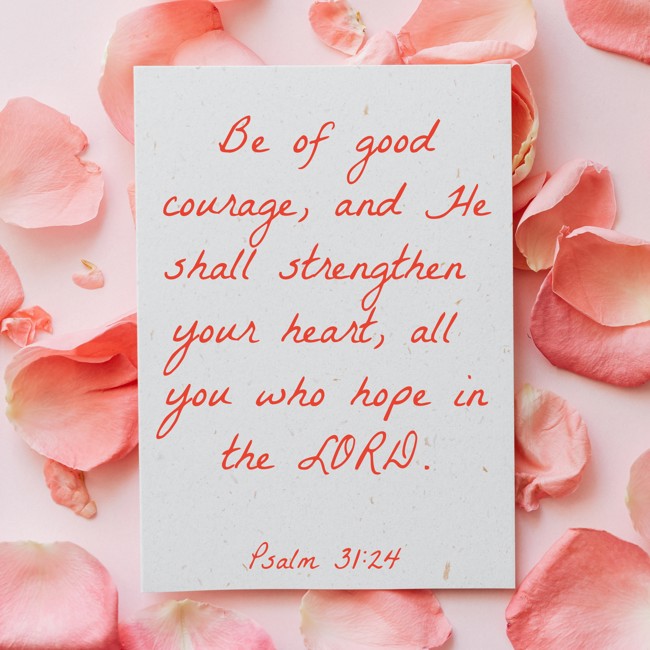 Be of good
courage, and He
shall strengthen
your heart, all
you who hope in
the LORD.
Psalm 31:24